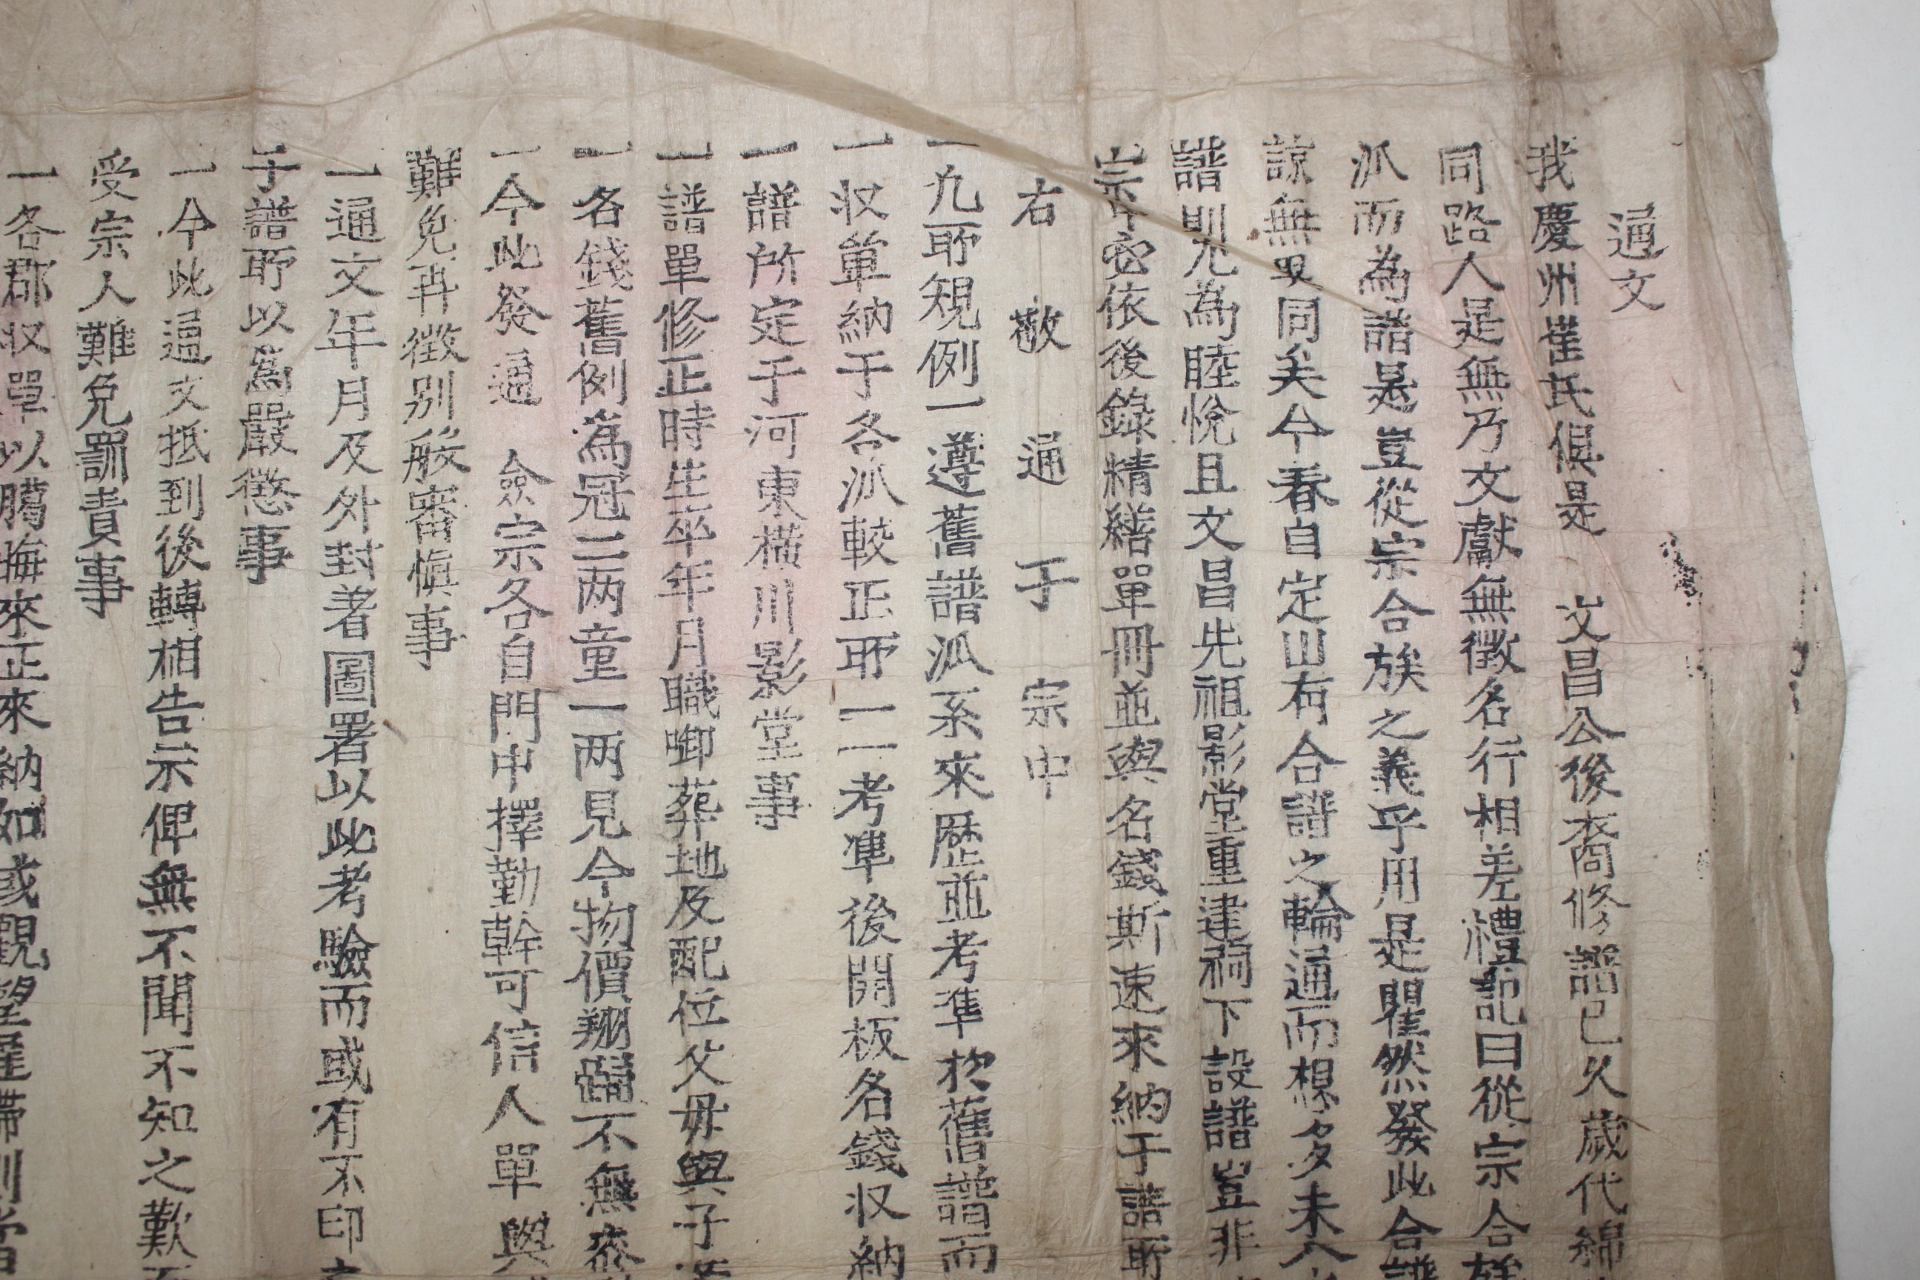 通文
我慶州崔氏俱是 文昌公後裔修譜已久歲代綿
同路人是無乃文獻無徵名行相差禮記曰從宗合族
派而為譜是豈從宗合族之義乎用是瞿然發此合譜
諒無異同矣今春自定山有合譜之輪通而想多未
譜則允為睦悅且文昌先祖影堂重建祠下設譜豈非
宗中必依後錄精繕單冊並與名錢斯速來納于譜所
右敬通于宗中
一凡所規例一遵舊譜派系來歷並考準於舊譜而
一收單納于各派較正所一一考準後開板名錢收納
一譜所定于河東橫川影堂事
一譜單修正時生卒年月職啣葬地及配位父母與子
一名錢舊例為冠二両童一両見今物價翔踊不無
一今此發通 僉宗各自門中擇勤幹可信人單與
難免再徵別般審愼事
一通文年月及外封着圖署以此考驗而或有不印
于譜所以為嚴懲事
一今此通文抵到後轉相告示俾無不聞不知之歎
受宗人難免罰責事
一各郡收單以臈晦來正來納如或觀望遲滯則當